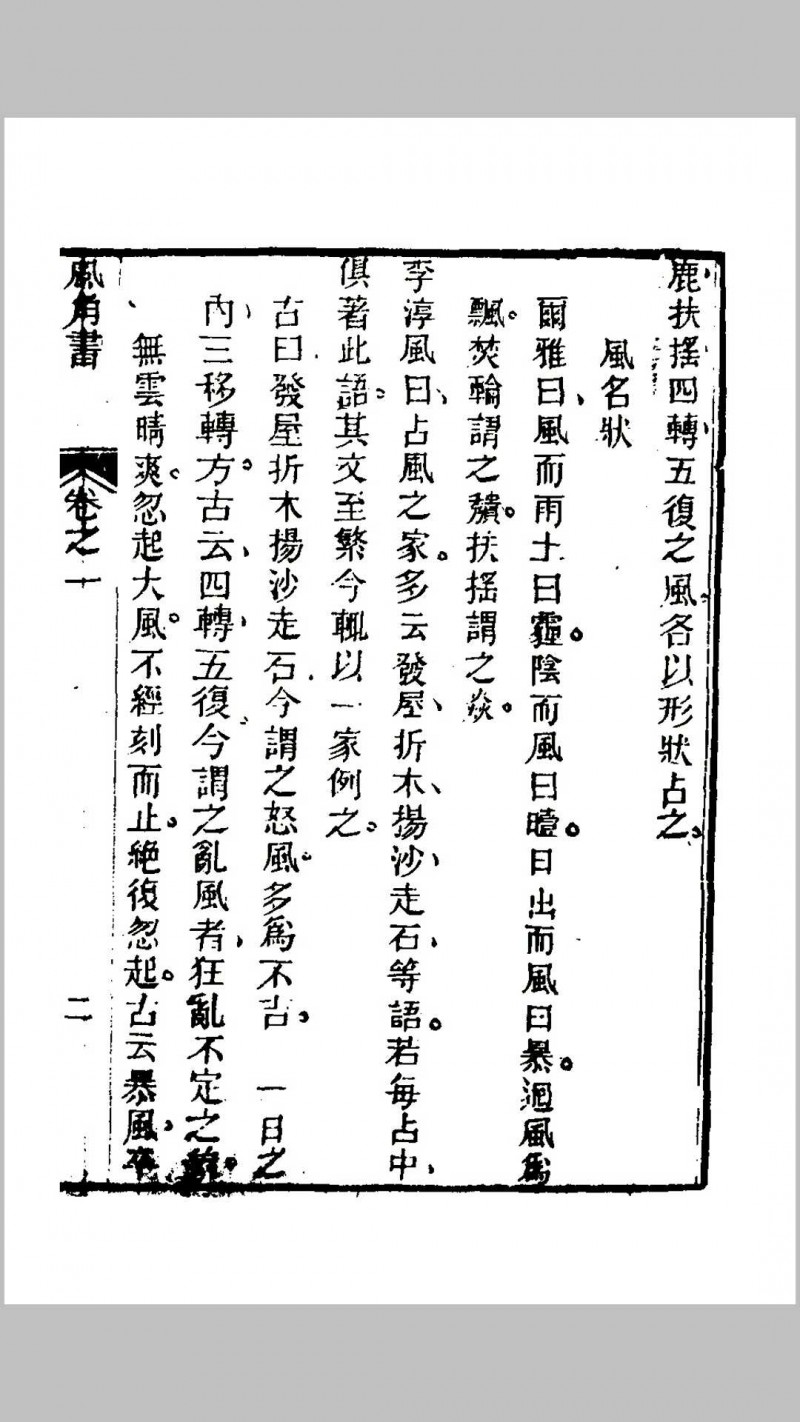 鹿扶搖四轉五復之風各以形狀占之。
風名狀
爾雅曰、風而雨土曰霾。陰而風曰曀。日出而風曰暴。迴風爲
飄。焚輪謂之穨。扶搖謂之猋。
李淳風曰、占風之家。多云發屋、折木、揚沙、走石、等語。若每占中、
俱著此語。其文至繁今輒以一家例之。
古曰發屋折木揚沙走石今謂之怒風。多爲不吉。 一日之
內、三移轉方。古云、四轉、五復。今謂之亂風者、狂亂不定之
無雲晴爽。忽起大風。不經刻而止。絶復忽起。古云暴風、卒
風角書 卷之一 二